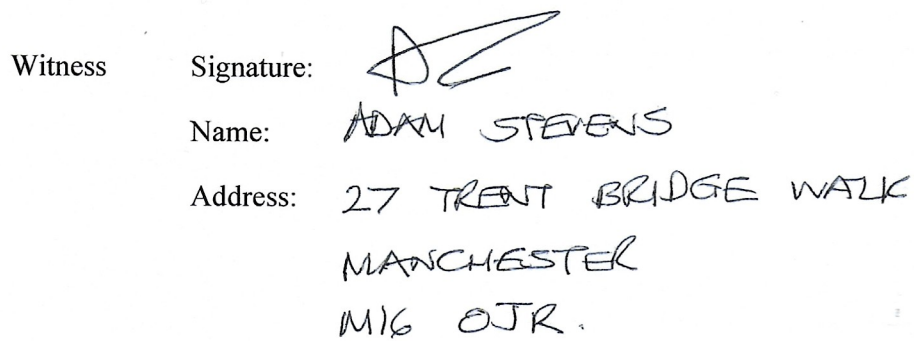 Witness Signature:
Name: ADAM STEVENS
Address: 27 TRENT BRIDGE WALK
MANCHESTER
M16 0JR.